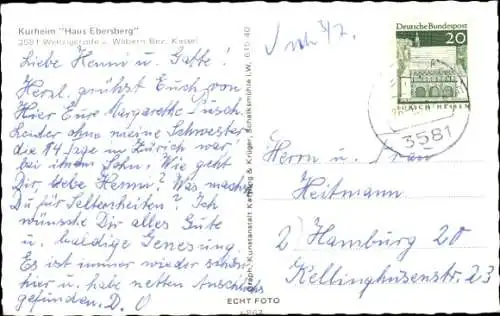 Kurheim "Haus Ebersberg"
3581 Wenzigerode ü. Wabern Bez. Kassel
Liebe Henni u. Gatte!
Herzl. grüßt Euch von
Hier Eure Margarethe
Leider ohne meine Schwester
die 14 Tge in Zürich war
bei ihrem Sohn. Wie geht
Dir, liebe Henni? Was machst
Du für Seltenheiten? Ich
wünsche Dir alles Gute
u. baldige Genesung
Es ist immer wieder schön
hier u. habe netten Anschluss
gefunden. D. O
Graph. Kunstanstalt Kettling & Krüger, Schalksmühle i.W. 675/40
ECHT FOTO
Deutsche Bundespost
20
LORSCH/HESSEN
3581
Herrn u. Frau
Heitmann
2 Hamburg 20
Kellinghusenstr. 23